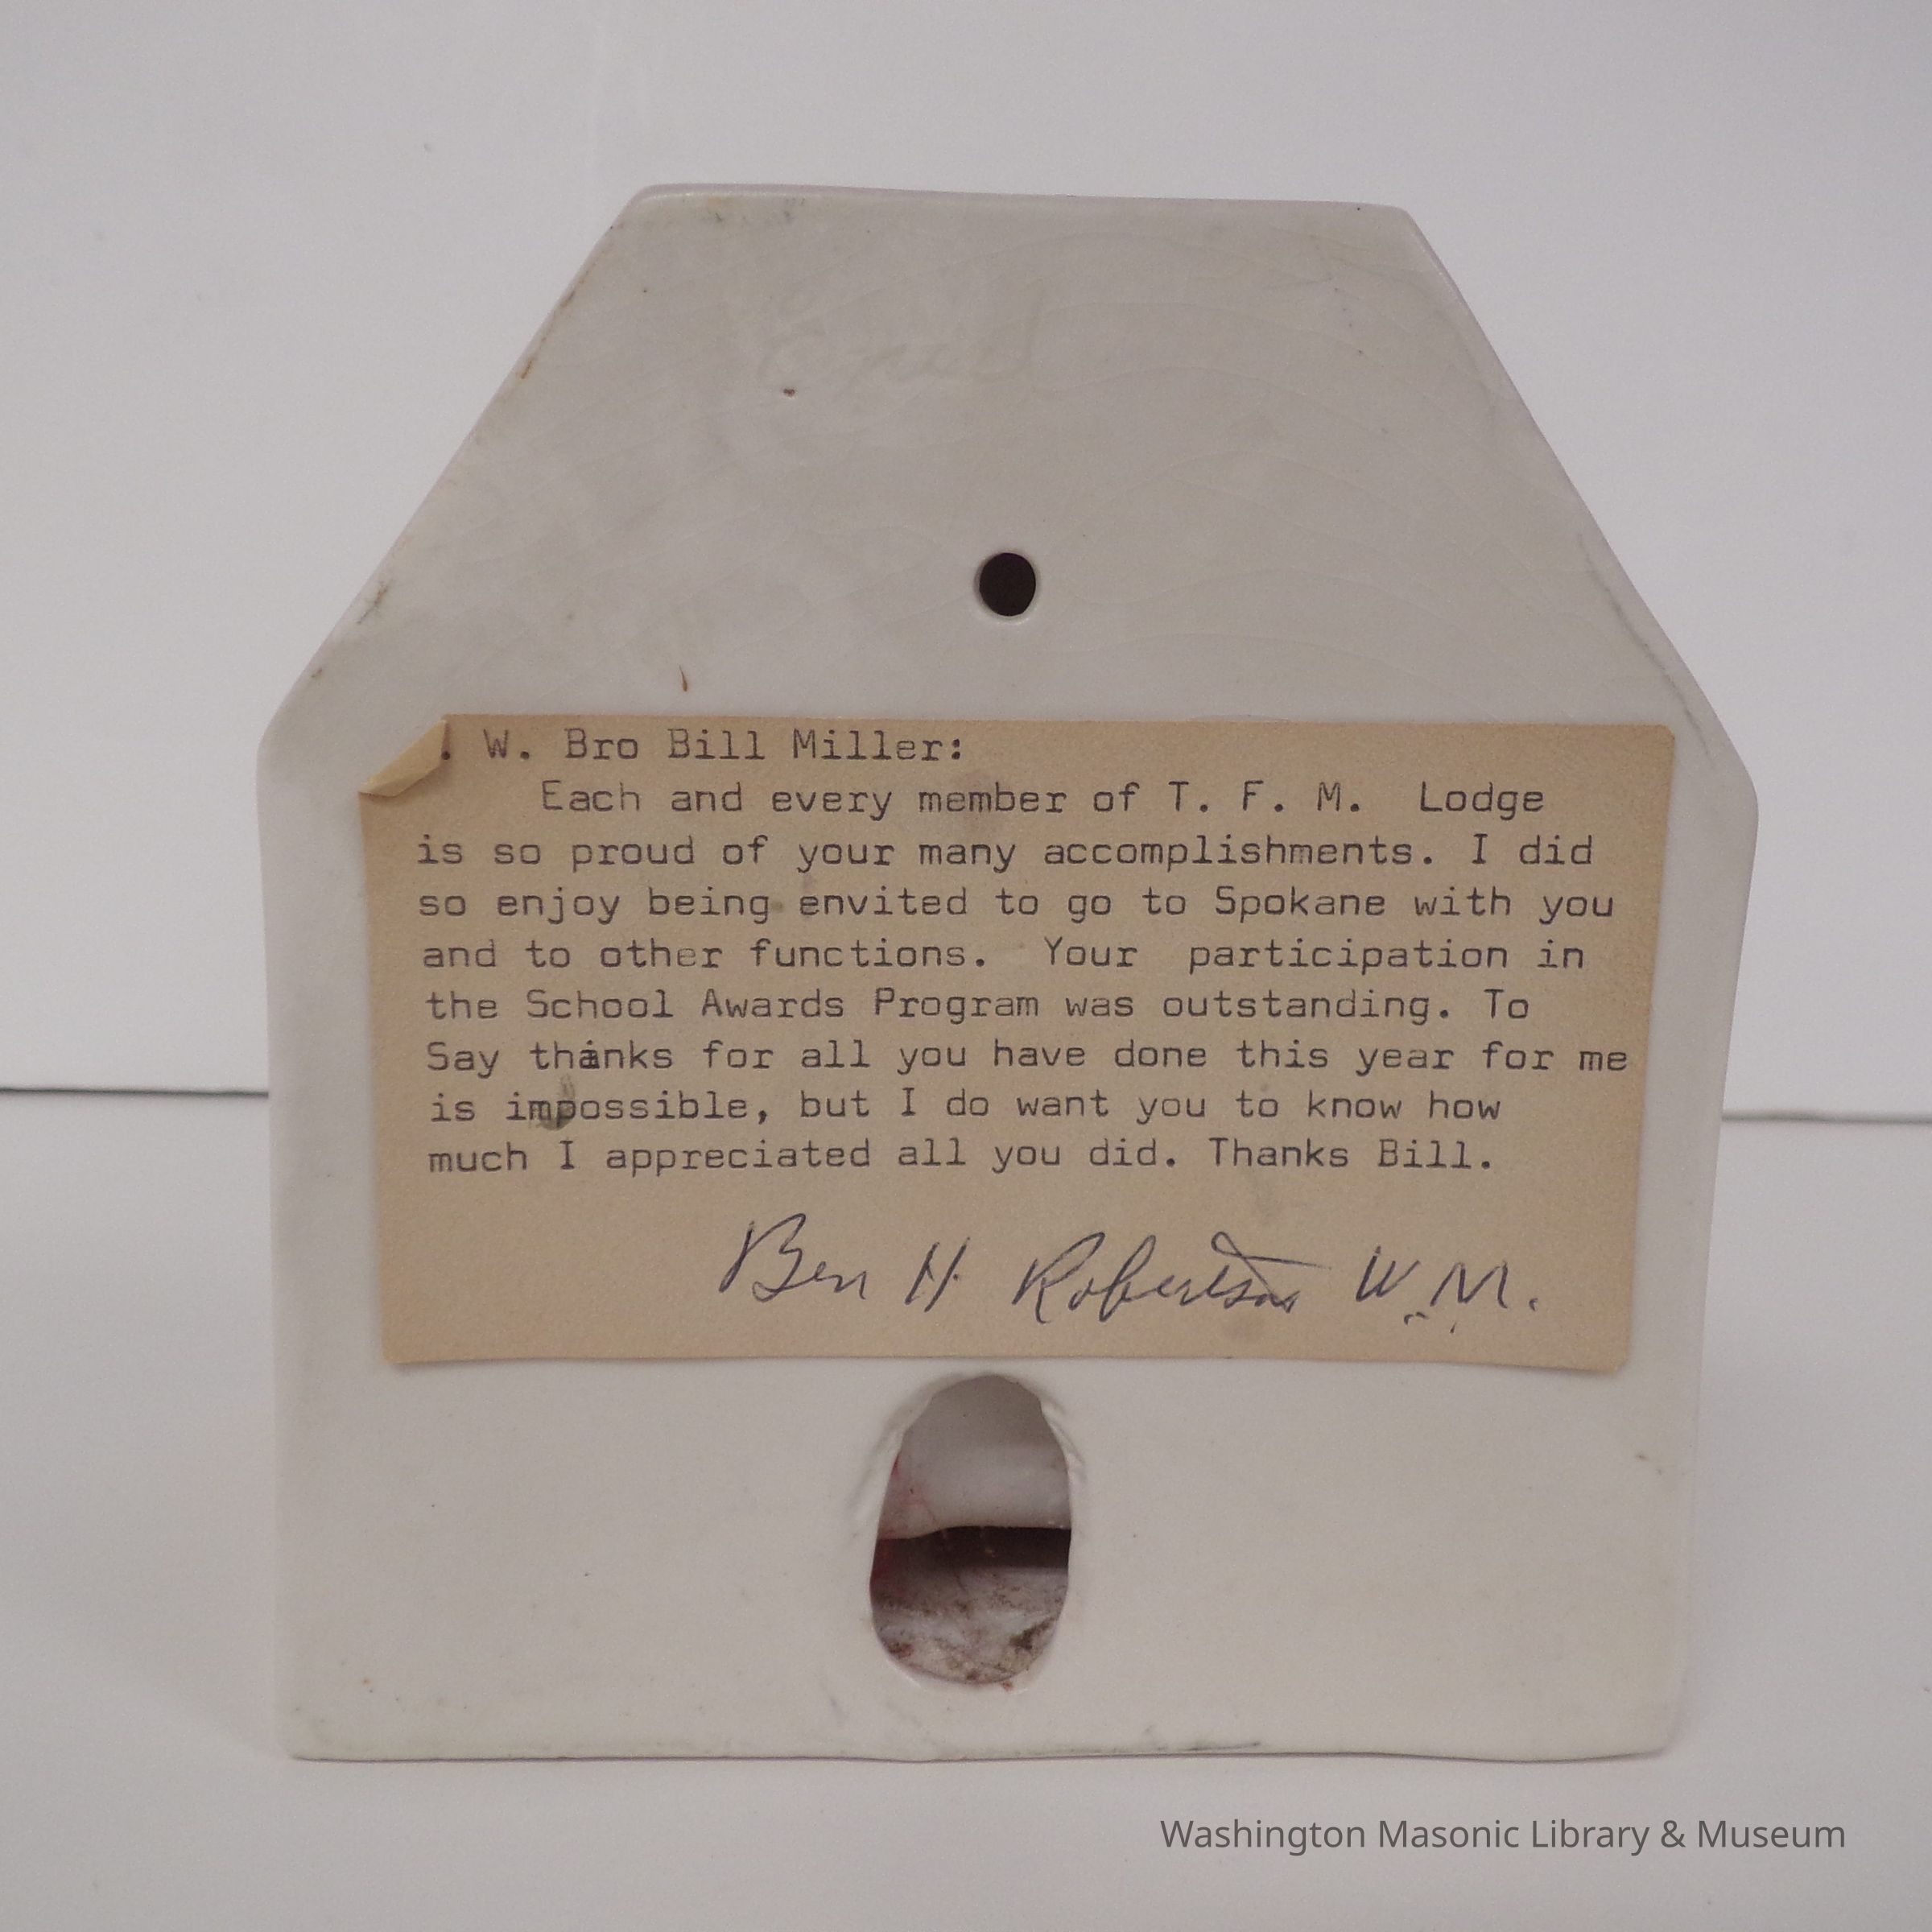 . W. Bro Bill Miller:
Each and every member of T. F. M. Lodge
is so proud of your many accomplishments. I did
so enjoy being envited to go to Spokane with you
and to other functions. Your participation in
the School Awards Program was outstanding. To
Say thanks for all you have done this year for me
is impossible, but I do want you to know how
much I appreciated all you did. Thanks Bill.
Ben H Robertson W.M.
Washington Masonic Library & Museum